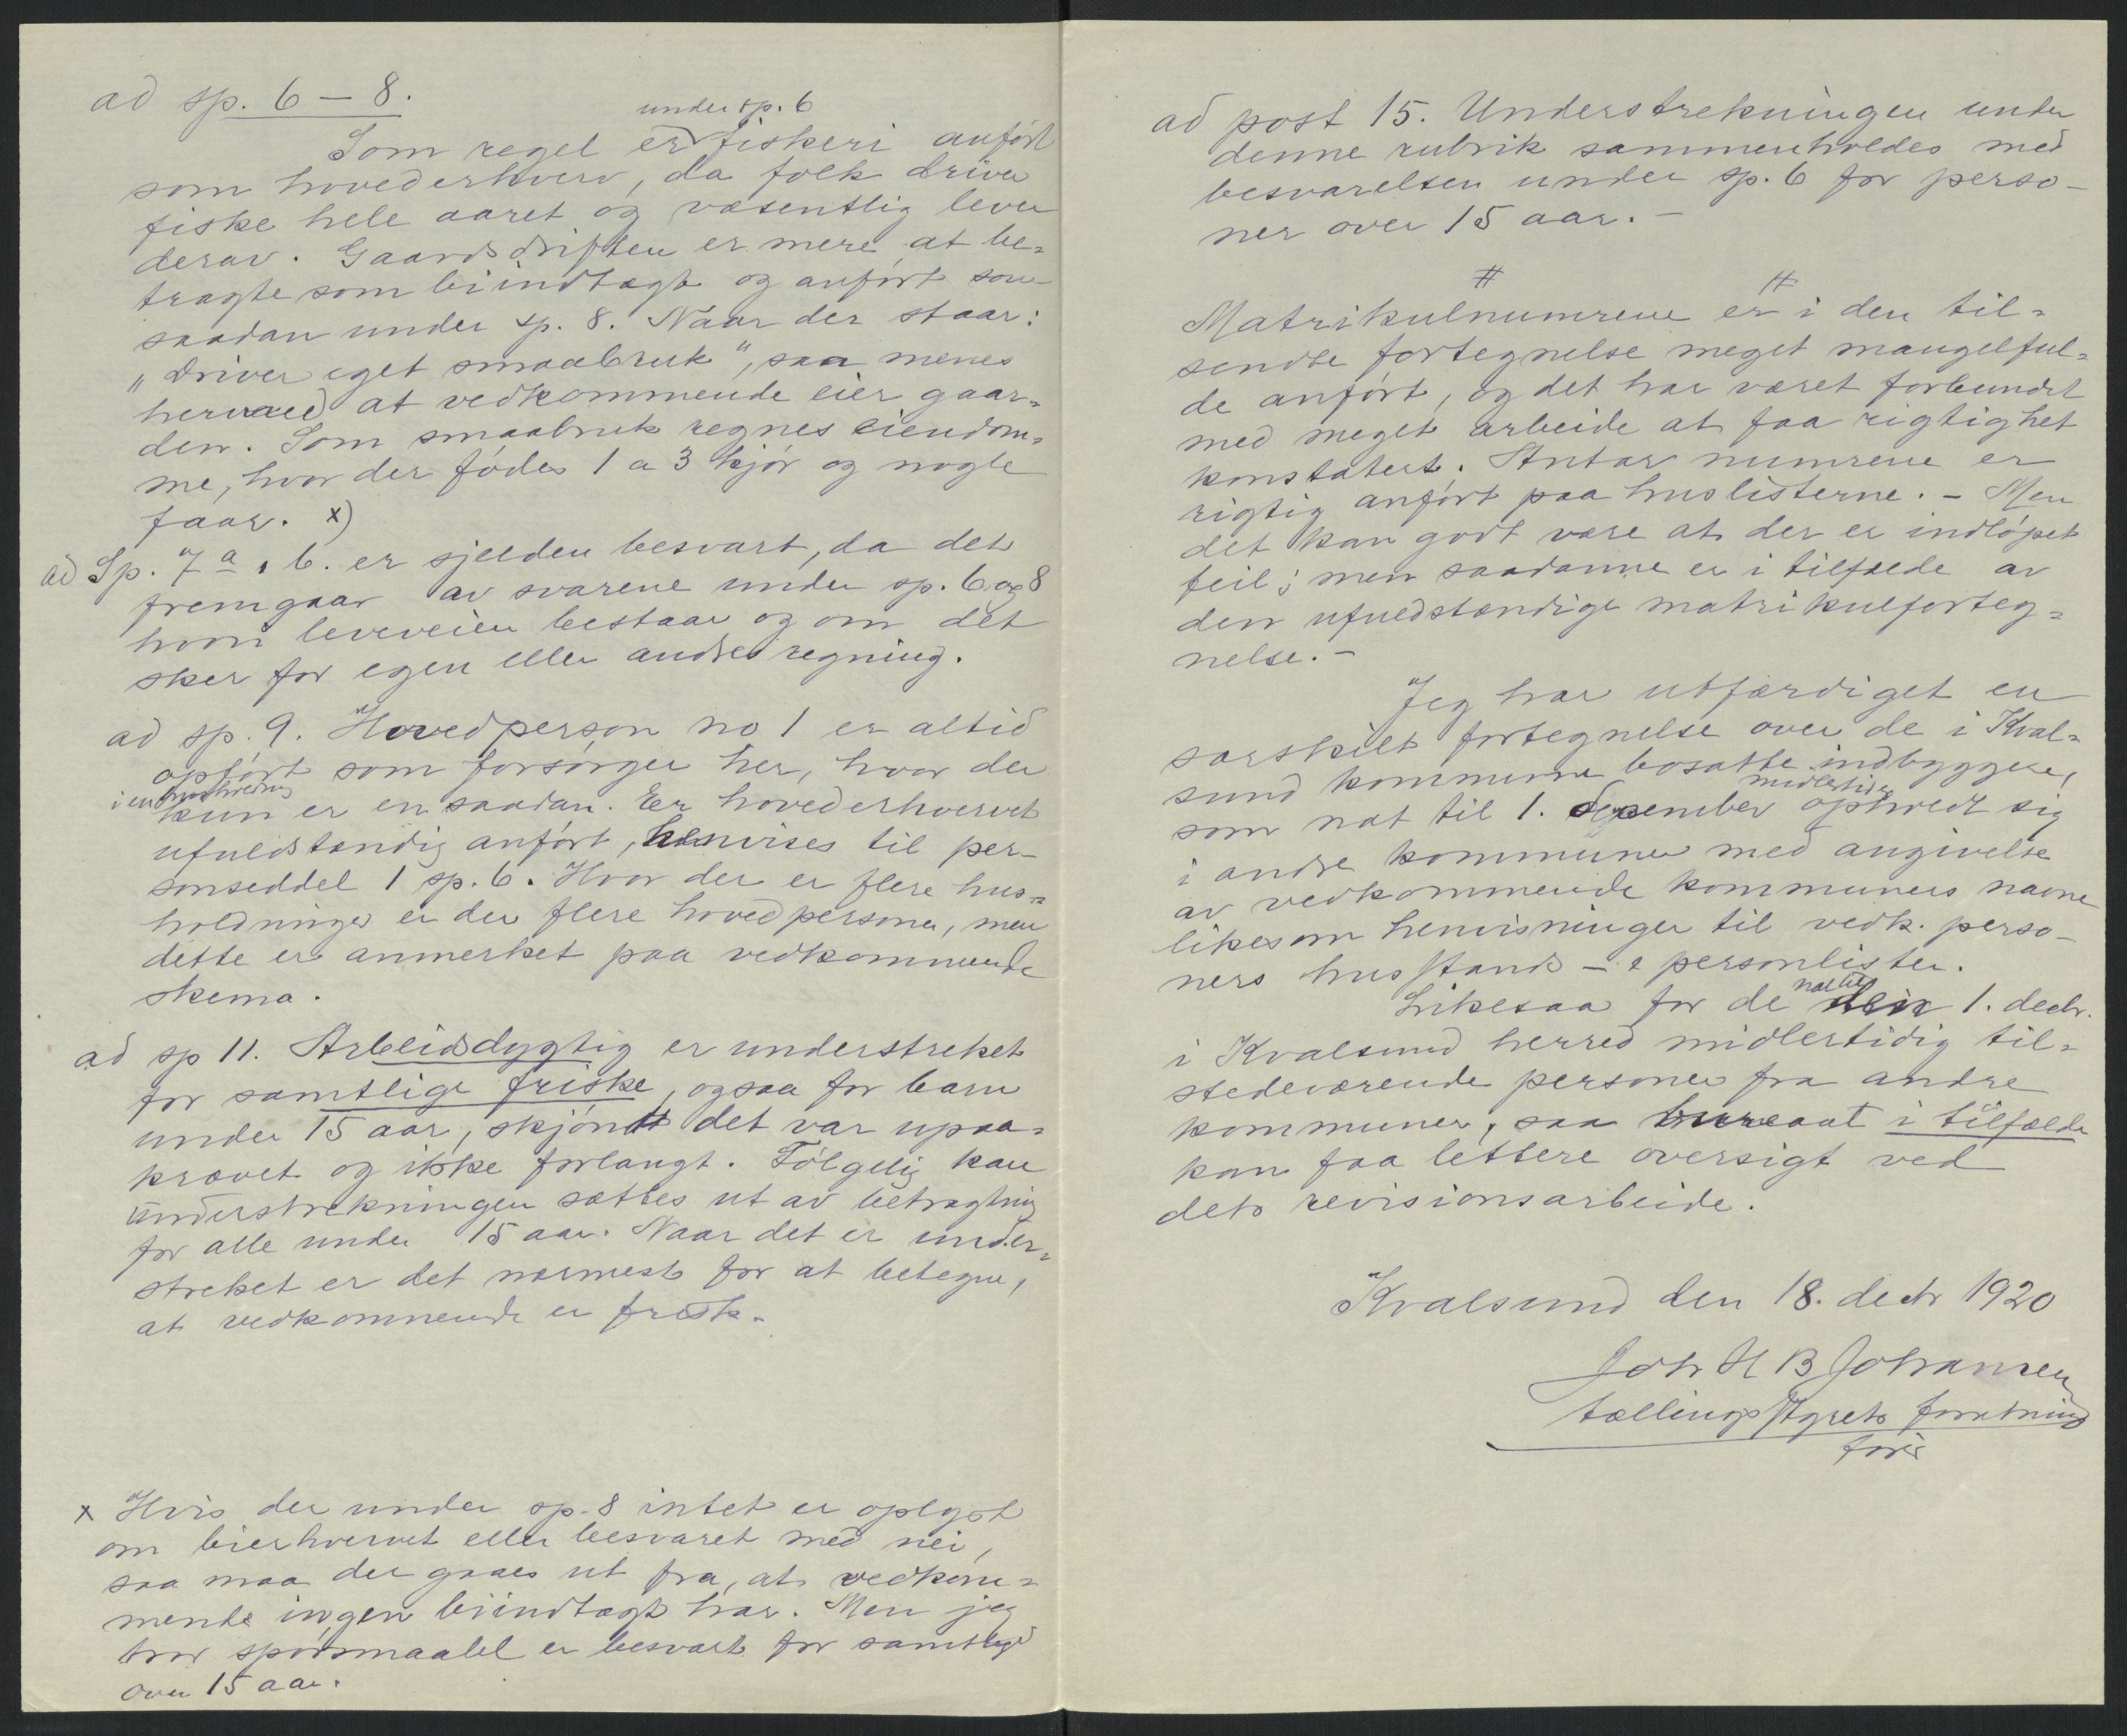 ad sp. 6 – 8.
under sp. 6
Som regel er fiskeri anført
som hovederhverv, da folk driver
fiske hele aaret og væsentlig lever
derav. Gaardsdriften er mere at be=
tragte som biindtægt og anført som
saadan under sp. 8. Naar der staar:
„Driver eget smaabruk", saa menes
hermed at vedkommende eier gaar=
den. Som smaabruk regnes eiendom=
me, hvor der fødes 1 a 3 kjør og nogle
faar. x)
ad Sp. 7 a, b. er sjelden besvart, da det
fremgaar av svarene under sp. 6 og 8
hvori leveveien bestaar og om det
sker for egen eller andres regning.
ad sp. 9. Hovedperson no 1 er altid
opført som forsørger her, hvor der
i en husholdning
kun er en saadan. Er hovederhvervet
ufuldstændig anført, henvises til per-
sonseddel 1 sp. 6. Hvor der er flere hus=
holdninger er der flere hovedpersoner, men
dette er anmerket paa vedkommende
skema.
ad sp 11. Arbeidsdygtig er understreket
for samtlige friske, ogsaa for barn
under 15 aar, skjønt det var upaa=
krævet og ikke forlangt. Følgelig kan
understrekningen sættes ut av betragtning
for alle under 15 aar. Naar det er under=
streket er det nærmest for at betegne,
at vedkommende er frisk.
x Hvis der under sp. 8 intet er oplyst
om bierhvervet eller besvaret med nei,
saa maa der gaaes ut fra, at vedkom=
mende ingen biindtægt har. Men jeg
tror spørsmaalet er besvart for samtlige
over 15 aar.
ad post 15. Understrekningen under
denne rubrik sammenholdes med
besvarelsen under sp. 6 for perso-
ner over 15 aar. –
# #
Matrikulnumrene er i den til=
sendte fortegnelse meget mangelful=
de anført, og det har været forbundet
med meget arbeide at faa rigtighet
konstatert. Antar numrene er
rigtig anført paa huslisterne. – Men
det kan godt være at der er indløpet
feil; men saadanne er i tilfælde av
den ufuldstændige matrikulforteg=
nelse. –
Jeg har utfærdiget en
særskilt fortegnelse over de i Kval=
sund kommune bosatte indbyggere,
midlertidig
som nat til 1. december opholdt sig
i andre kommuner med angivelse
av vedkommende kommuners navne
likesom henvisninger til vedk. perso-
ners husstands – & personlister.
nat til
Likesaa for de 1. decbr.
i Kvalsund herred midlertidig til=
stedeværende personer fra andre
kommuner, saa bureaaet i tilfælde
kan faa lettere oversigt ved
dets revisionsarbeide.
Kvalsund den 18. decbr 1920
Joh H B Johansen
tællingsstyrets forretnings
fører